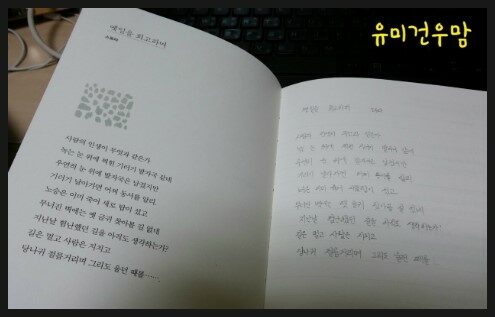 유미건우맘
옛일을 회고하며
소동파
사람의 인생이 무엇과 같은가
녹는 눈 위에 찍힌 기러기 발자국 같네
우연히 눈 위에 발자국은 남겼지만
기러기 날아가면 어찌 동서를 알리.
노승은 이미 죽어 새로 탑이 섰고
무너진 벽에는 옛 글귀 찾아볼 길 없네
지난날 험난했던 길을 아직도 생각하는가?
길은 멀고 사람은 지치고
당나귀 절름거리며 그리도 울던 때를……
옛일을 회고하며 소동파
사람의 인생이 무엇과 같은가
눈 위에 찍힌 기러기 발자국 같네
우연히 눈 위에 발자국은 남겼지만
기러기 날아가면 어찌 동서를 알리
노승은 이미 죽어 새로 탑이 섰고
무너진 벽에는 옛 글귀 찾아볼 길 없네
지난날 험난했던 길을 아직도 생각하는가?
길은 멀고 사람은 지치고
당나귀 절름거리며 그리도 울던 때를